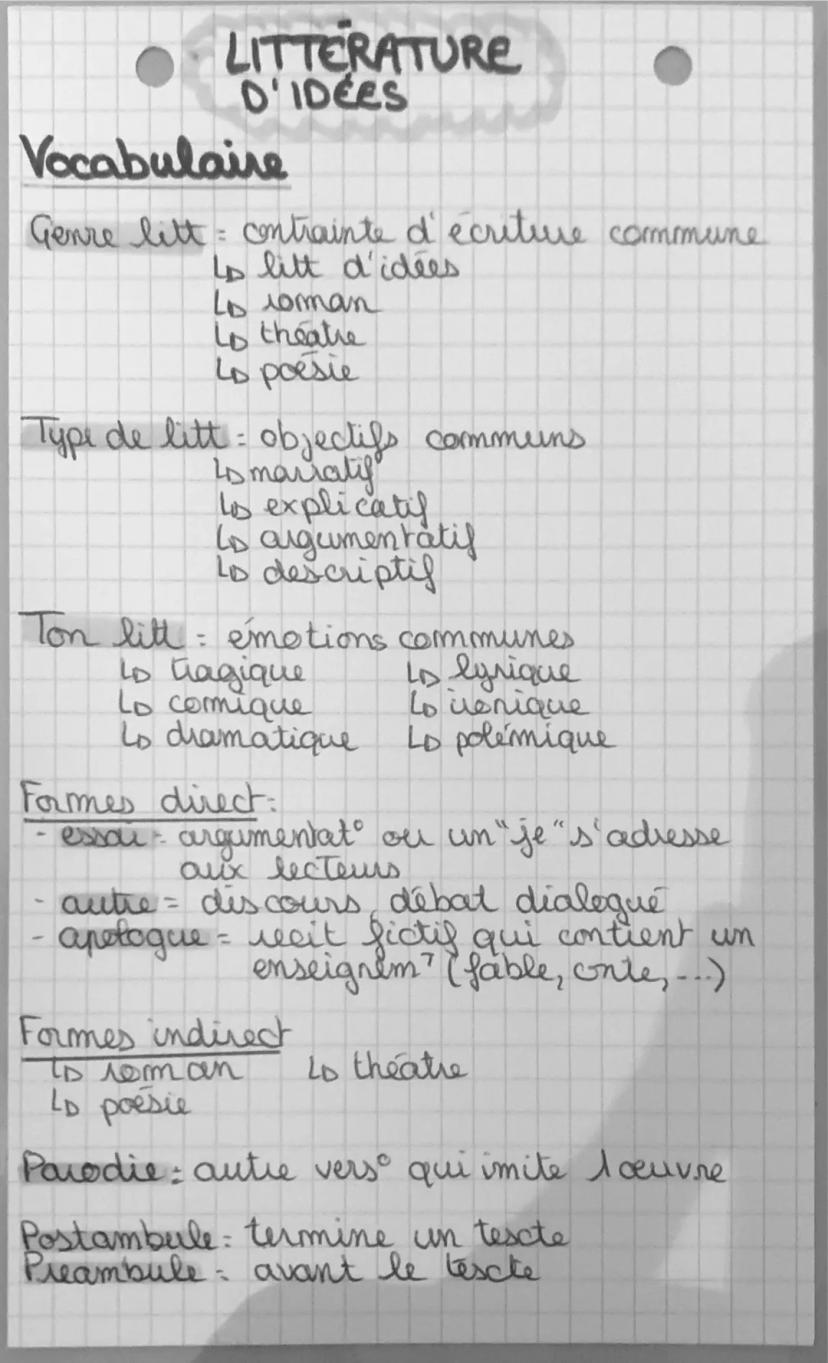 LITTÉRATURE
D'IDÉES
Vocabulaire
Genre litt = contrainte d'écriture commune
↳ litt d'idées
↳ roman
↳ théatre
↳ poésie
Type de litt = objectifs communs
↳ narratif
↳ explicatif
↳ argumentatif
↳ descriptif
Ton litt = émotions communes
↳ tragique ↳ lyrique
↳ comique ↳ ironique
↳ dramatique ↳ polémique
Formes direct:
- essai = argumentat° ou un "je" s'adresse
aux lecteurs
- autre = discours, débat dialogué
- apologue = récit fictif qui contient un
enseignemt (fable, conte, ...)
Formes indirect
↳ roman ↳ théatre
↳ poésie
Parodie = autre vers° qui imite 1 œuvre
Postambule = termine un texte
Préambule = avant le texte